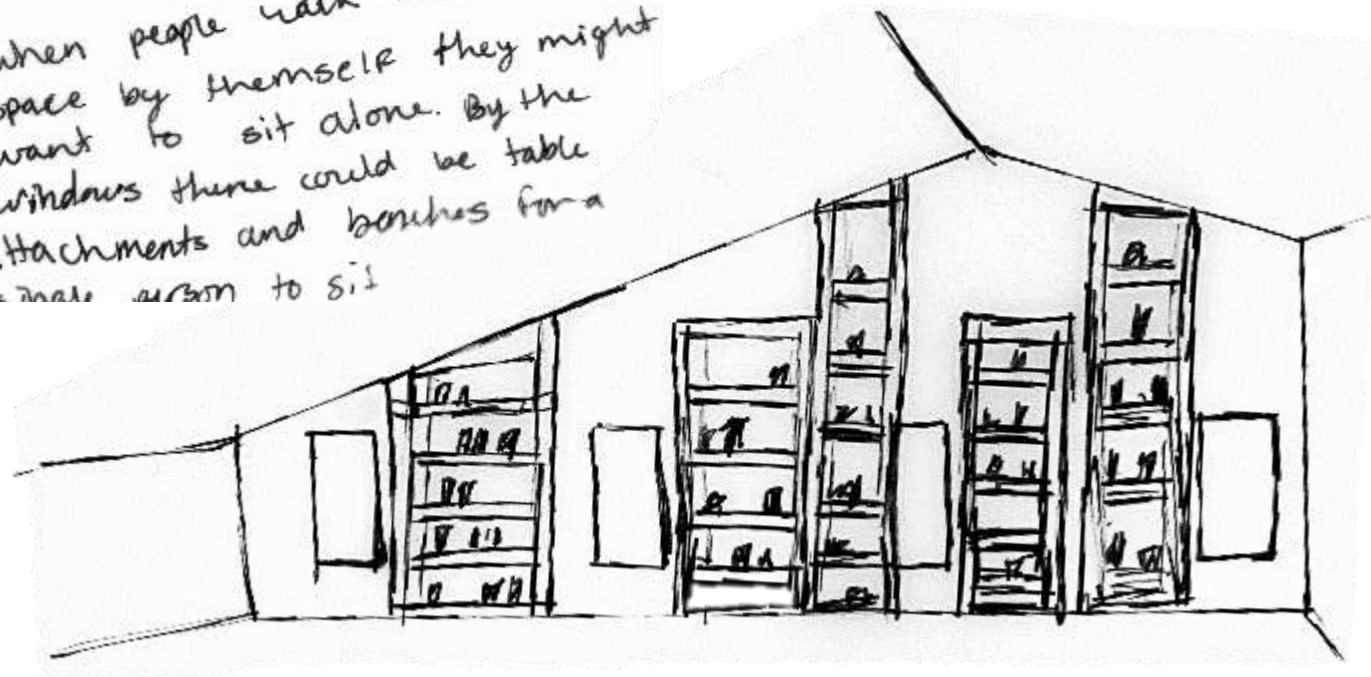 when people walk
space by themself they might
want to sit alone. By the
windows there could be table
attachments and benches for a
person to sit